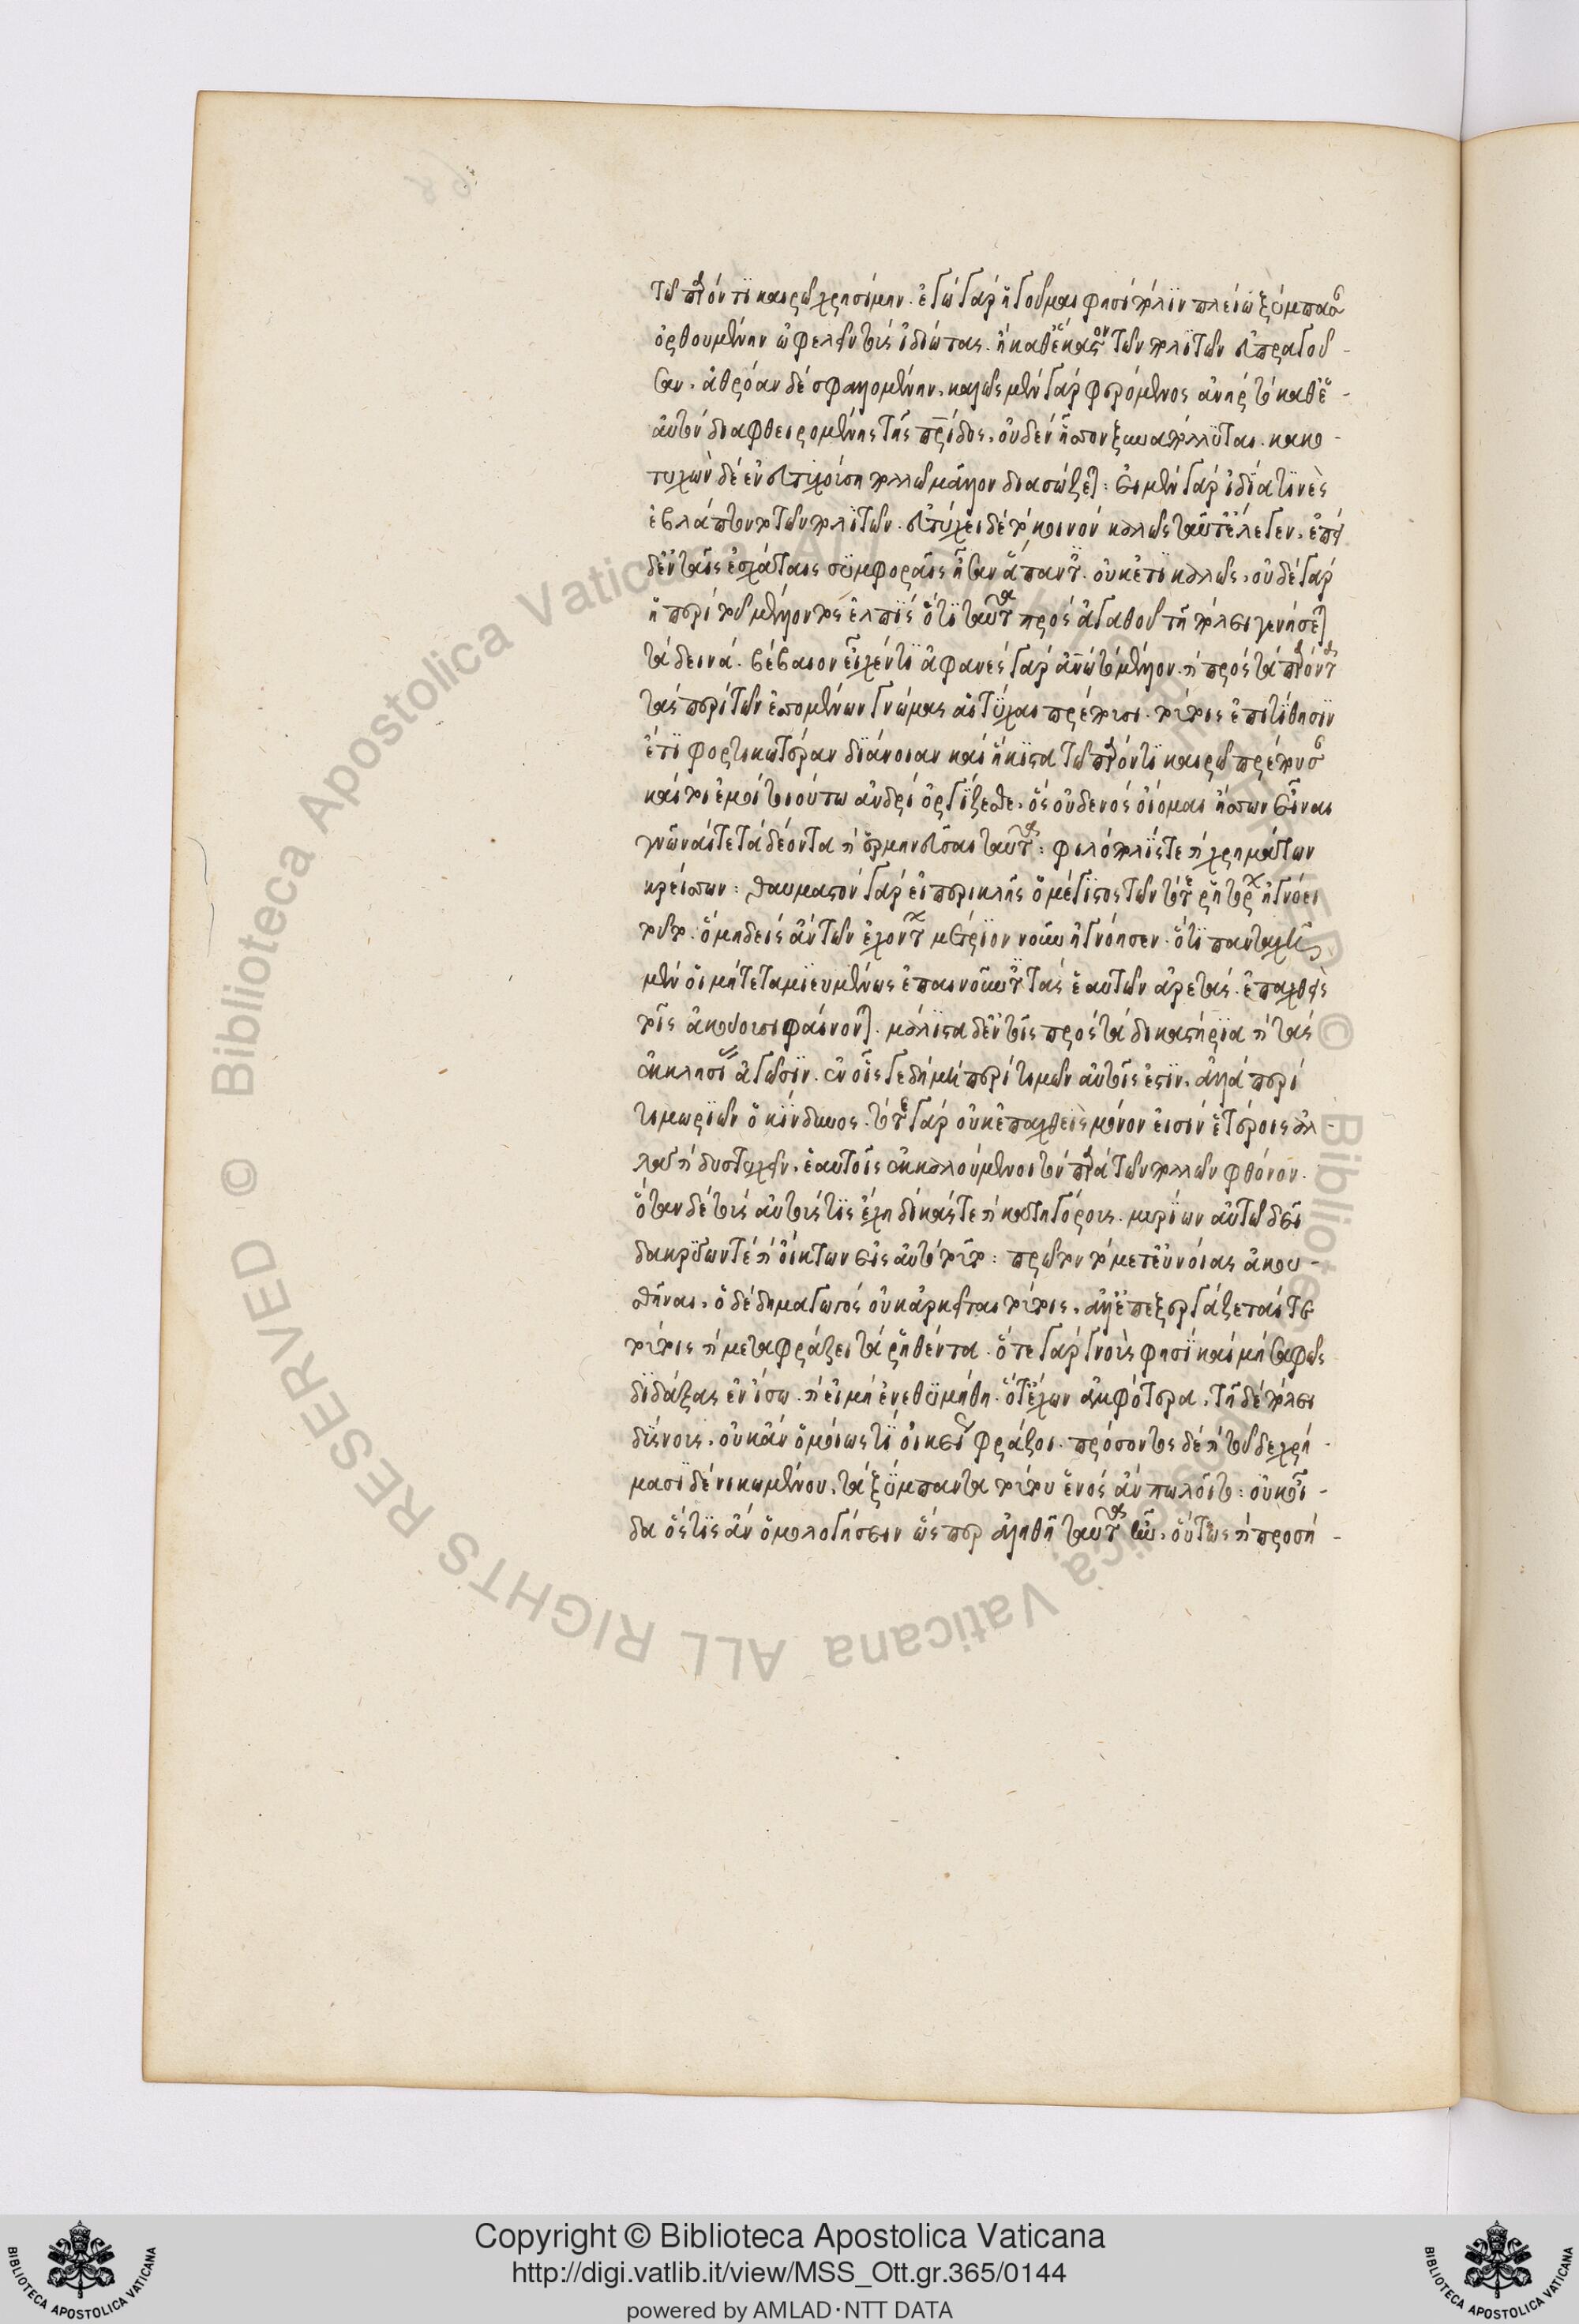 τῶ παρόντι καιρῶ χρησίμην. ἐγὼ γὰρ ἡγοῦμαι φησὶ πόλιν πλείω ξύμπασαν
ὀρθουμένην ὠφελεῖν τοὺς ἰδιώτας. ἢ καθ' ἕκαστον τῶν πολιτῶν εὐπραγοῦ-
σαν. ἀθρόαν δὲ σφαλλομένην. καλῶς μὲν γὰρ φερόμενος ἀνὴρ τὸ καθ' ἑ-
αυτὸν διαφθειρομένης τῆς πατρίδος, οὐδὲν ἧττον ξυναπόλλυται. κακο-
τυχῶν δὲ ἐν εὐτυχούσῃ πολλῶ μᾶλλον διασώζεται: εἰ μὲν γὰρ ἰδία τινὲς
ἐβλάπτοντο τῶν πολιτῶν. εὐτύχει δὲ τὸ κοινὸν καλῶς ταῦτ' ἔλεγεν. ἐπεὶ
δ' ἐν ταῖς ἐσχάταις συμφοραῖς ἦσαν ἅπαντες. οὐκέτι καλῶς. οὐδὲ γὰρ
ἡ περὶ τοῦ μέλλοντος ἐλπὶς ὅτι ταῦτα πρὸς ἀγαθοῦ τῆ πόλει γενήσεται
τὰ δεινά. βέβαιον εἶχέν τι ἀφανὲς γὰρ ἀνθρώπω τὸ μέλλον. καὶ πρὸς τὰ παρόντα
τὰς περὶ τῶν ἐπομένων γνώμας αἱ τύχαι τρέπουσι. τούτοις ἐπιτίθησιν
ἔτι φορτικωτέραν διάνοιαν καὶ ἥκιστα τῶ παρόντι καιρῶ πρέπουσαν
καίτοι ἐμοὶ τοιούτω ἀνδρὶ ὀργίζεσθε. ὃς οὐδενὸς οἴομαι ἥττων εἶναι
γνῶναί τε τὰ δέοντα καὶ ἑρμηνεῦσαι ταῦτα: φιλόπολίς τε καὶ χρημάτων
κρείττων: θαυμαστὸν γὰρ εἰ περικλῆς ὁ μέγιστος τῶν τότε ῥητόρων ἠγνόει
τοῦτο. ὃ μηδεὶς ἂν τῶν ἐχόντων μέτριον νοῦν ἠγνόησεν. ὅτι πανταχῆ
μὲν οἱ μὴ τεταμιευμένως ἐπαινοῦντες τὰς ἑαυτῶν ἀρετὰς. ἐπαχθεῖς
τοῖς ἀκούουσι φαίνονται. μάλιστα δ' ἐν τοῖς πρὸς τὰ δικαστήρια καὶ τὰς
ἐκκλησίας ἀγῶσιν. ἐν οἷς γε δὴ μὴ περὶ τιμῶν αὐτοῖς ἐστιν. ἀλλὰ περὶ
τιμωριῶν ὁ κίνδυνος. τότε γὰρ οὐκ ἐπαχθεῖς μόνον εἰσὶν ἑτέροις ἀλ-
λὰ καὶ δυστυχεῖν. ἑαυτοῖς ἐκκαλούμενοι τὸν παρὰ τῶν πολλῶν φθόνον.
ὅταν δὲ τοὺς αὐτοὺς τις ἔχη δικαστάς τε καὶ κατηγόρους. μυρίων αὐτῶ δεῖ
δακρύων τὲ καὶ οἴκτων εἰς αὐτὸ τοῦτο: πρῶτον τὸ μετ' εὐνοίας ἀκου-
σθῆναι. ὁ δὲ δημαγωγὸς οὐκ ἀρκεῖται τούτοις. ἀλλ' ἐπεξεργάζεταί τε
τούτοις καὶ μεταφράζει τὰ ῥηθέντα. ὅ τε γὰρ γνοὺς φησὶ καὶ μὴ σαφῶς
διδάξας ἐν ἴσω. καὶ εἰ μὴ ἐνεθυμήθη. ὅ τ' ἔχων ἀμφότερα. τῆ δὲ πόλει
δύσνους. οὐκ ἂν ὁμοίως τι οἰκείως φράζοι. προσόντος δὲ καὶ τοῦδε χρή-
μασι δὲ νικωμένου. τὰ ξύμπαντα τούτου ἑνὸς ἂν πωλοῖτο: οὐκ οἶ-
δα ὅστις ἂν ὁμολογήσειεν ὥσπερ ἀληθῆ ταῦτα ἦν. οὕτως καὶ προσή-
Copyright © Biblioteca Apostolica Vaticana
http://digi.vatlib.it/view/MSS_Ott.gr.365/0144
powered by AMLAD·NTT DATA